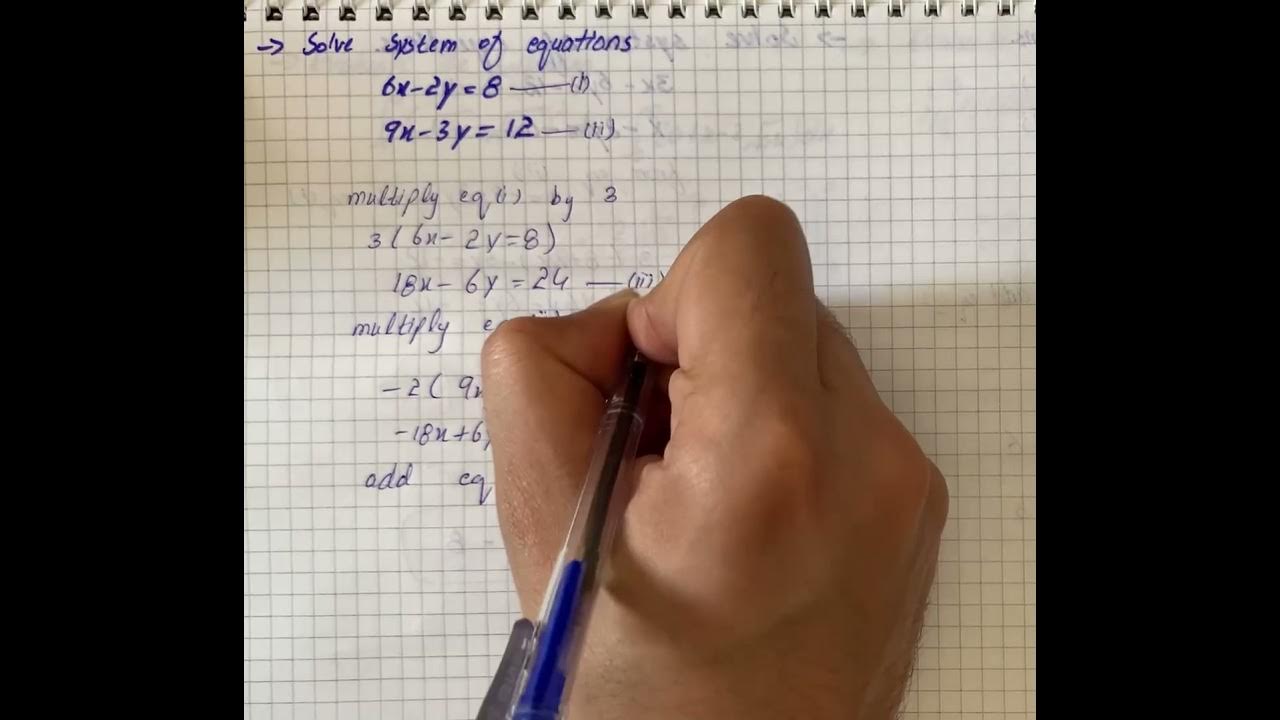 → Solve system of equations
6x-2y=8 —(i)
9x-3y=12 —(ii)
multiply eq(i) by 3
3(6x-2y=8)
18x-6y=24 —(iii)
multiply
-2(9x
-18x+6y
add eq